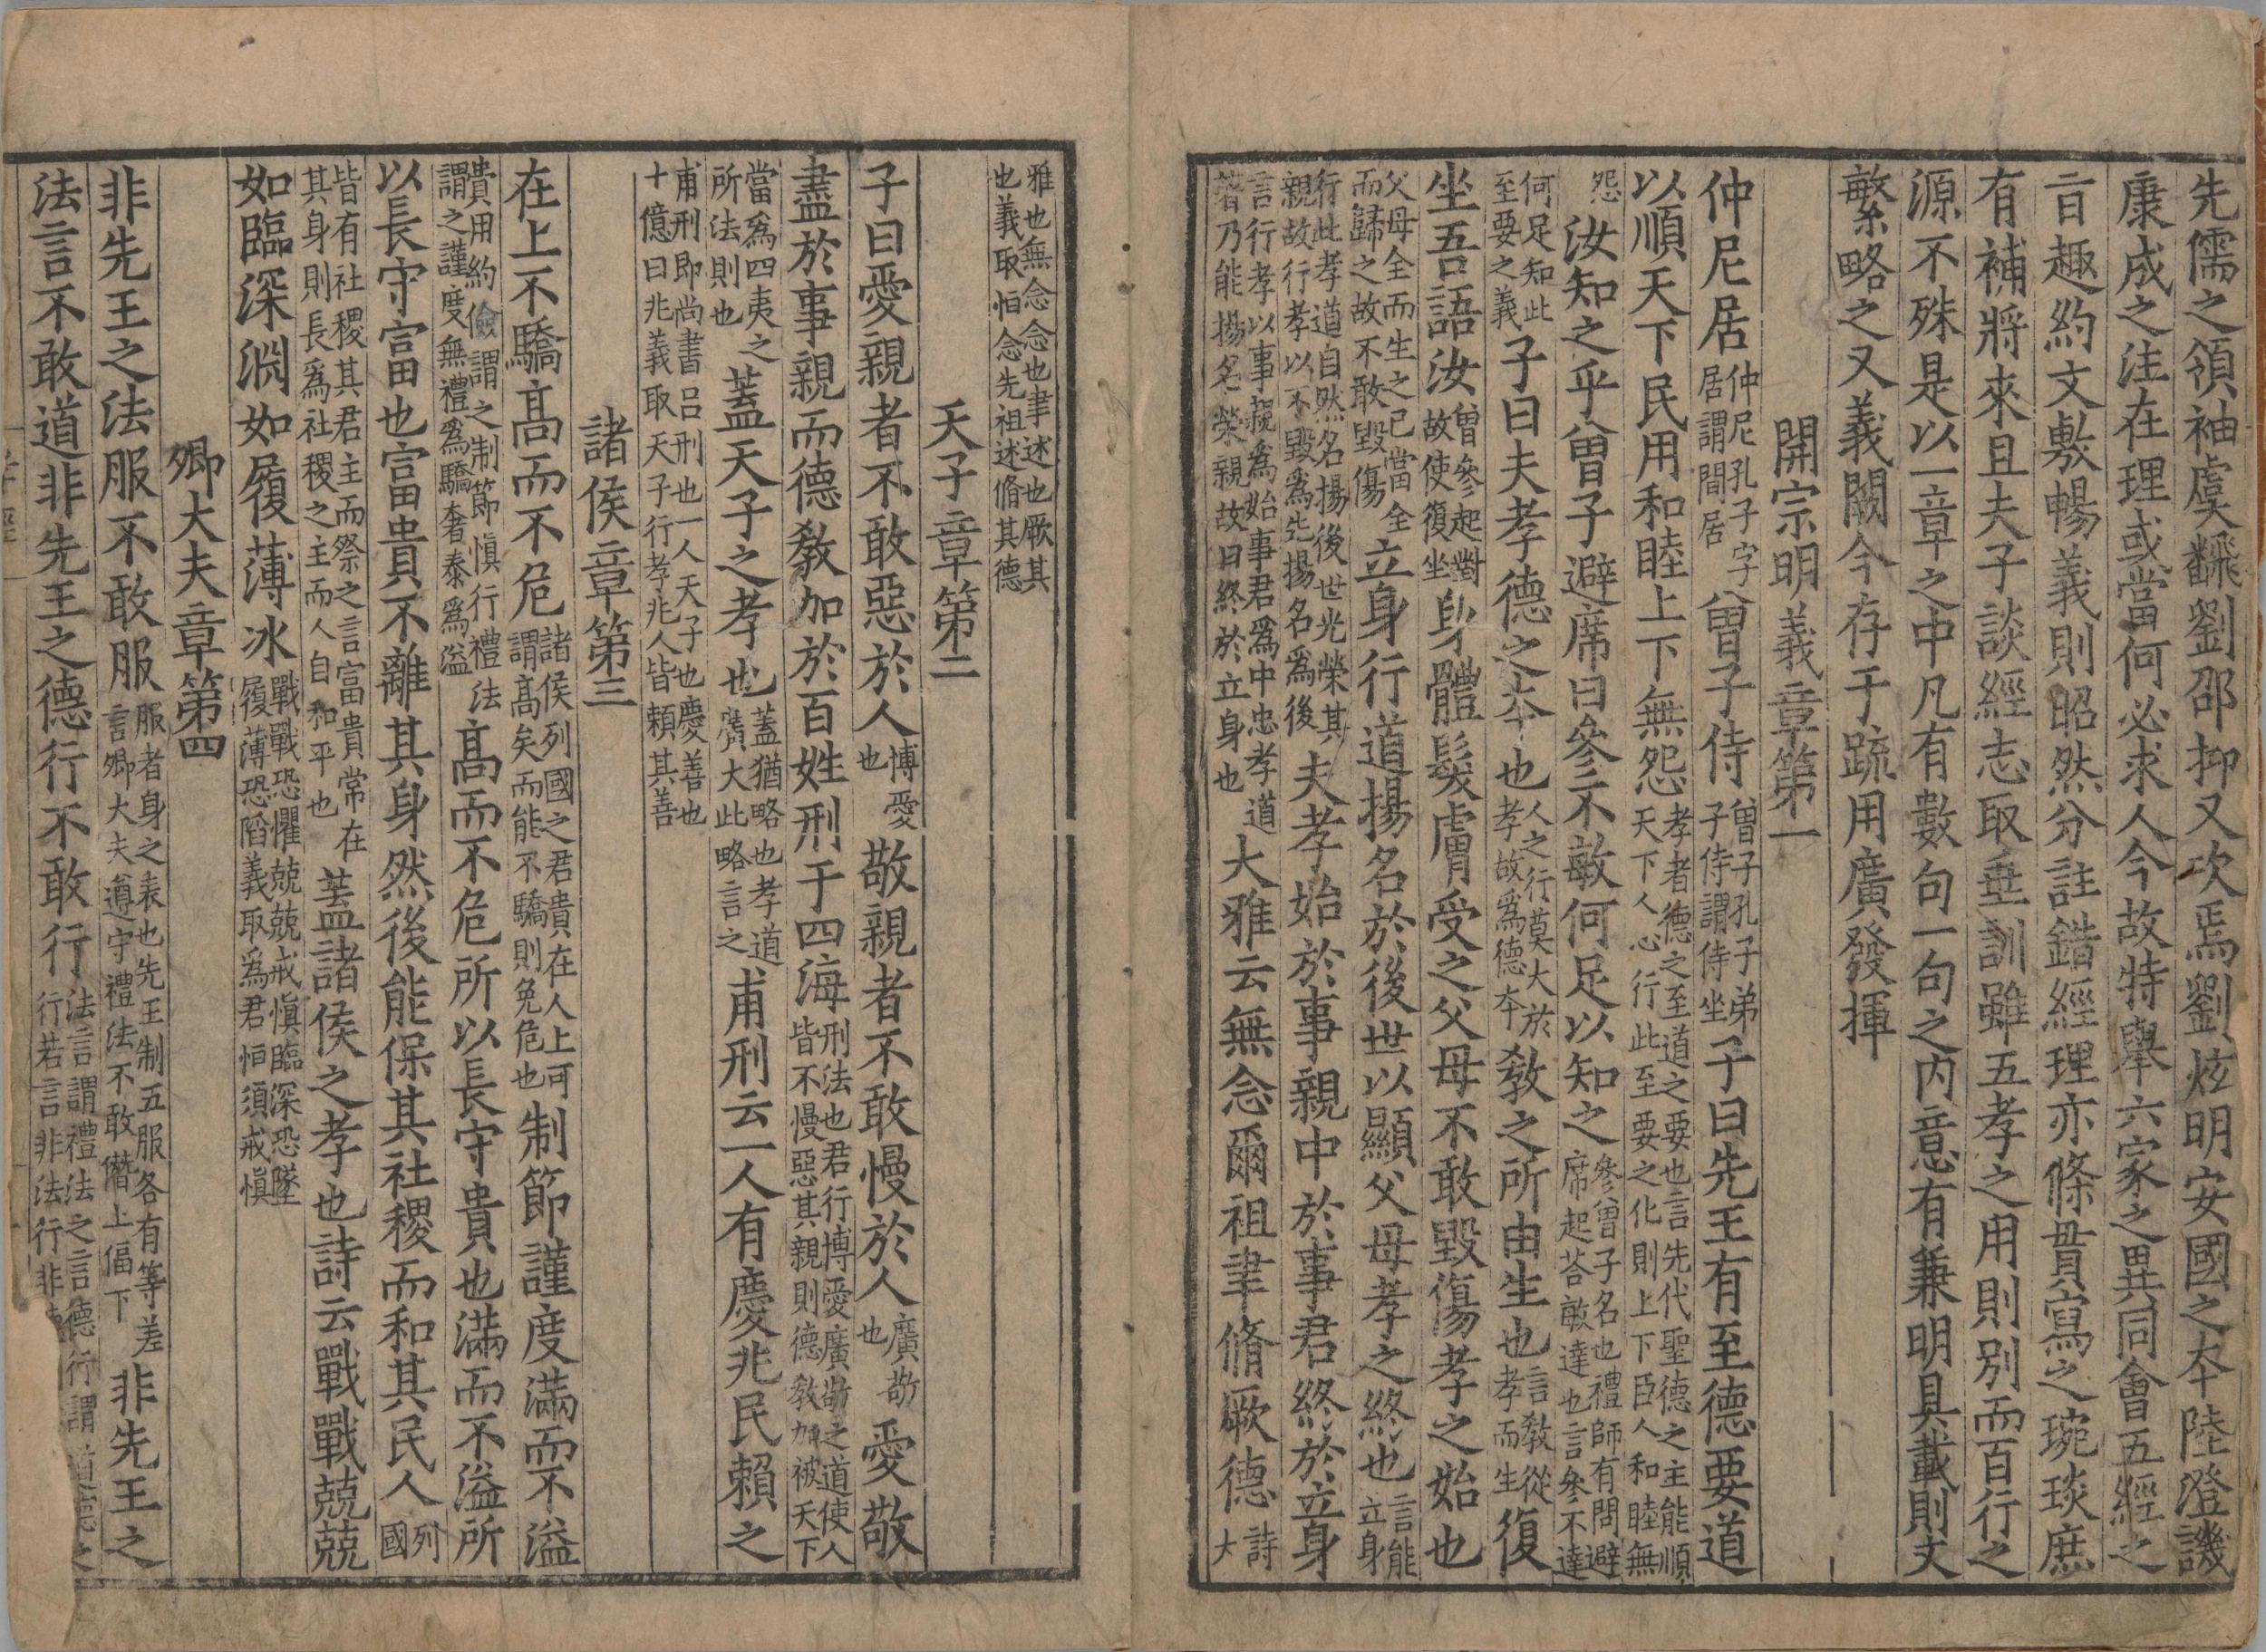 先儒之領袖虞飜劉邵抑又次焉劉炫明安國之本陸澄譏
康成之注在理或當何必求人今故特舉六家之異同會五經之
旨趣約文敷暢義則昭然分註錯經理亦條貫寫之琬琰庶
有補將來且夫子談經志取垂訓雖五孝之用則別而百行之
源不殊是以一章之中凡有數句一句之内意有兼明具載則文
繁略之又義闕今存于疏用廣發揮
開宗明義章第一
仲尼居仲尼孔子字居謂閒居曾子侍曾子孔子弟子侍謂侍坐子曰先王有至德要道
以順天下民用和睦上下無怨孝者德之至道之要也言先代聖德之主能順天下人心行此至要之化則上下臣人和睦無
怨汝知之乎曾子避席曰參不敏何足以知之參曾子名也禮師有問避席起荅敏達也言參不達
何足知此至要之義子曰夫孝德之本也人之行莫大於孝故爲德本教之所由生也言教從孝而生復
坐吾語汝曾參起對故使復坐身體髮膚受之父母不敢毀傷孝之始也
父母全而生之己當全而歸之故不敢毀傷立身行道揚名於後世以顯父母孝之終也言能立身
行此孝道自然名揚後世光榮其親故行孝以不毀爲先揚名爲後夫孝始於事親中於事君終於立身
言行孝以事親爲始事君爲中忠孝道著乃能揚名榮親故曰終於立身也大雅云無念爾祖聿脩厥德詩大
雅也無念念也聿述也厥其也義取恒念先祖述脩其德
天子章第二
子曰愛親者不敢惡於人博愛也敬親者不敢慢於人廣敬也愛敬
盡於事親而德教加於百姓刑于四海刑法也君行博愛廣敬之道使人皆不慢惡其親則德教加被天下
當爲四夷之所法則也蓋天子之孝也蓋猶略也孝道廣大此略言之甫刑云一人有慶兆民賴之
甫刑即尚書吕刑也一人天子也慶善也十億曰兆義取天子行孝兆人皆賴其善
諸侯章第三
在上不驕高而不危諸侯列國之君貴在人上可謂高矣而能不驕則免危也制節謹度滿而不溢
費用約儉謂之制節慎行禮法謂之謹度無禮爲驕奢泰爲溢高而不危所以長守貴也滿而不溢所
以長守富也富貴不離其身然後能保其社稷而和其民人列國
皆有社稷其君主而祭之言富貴常在其身則長爲社稷之主而人自和平也蓋諸侯之孝也詩云戰戰兢兢
如臨深淵如履薄冰戰戰恐懼兢兢戒慎臨深恐墜履薄恐䧟義取爲君恒須戒慎
卿大夫章第四
非先王之法服不敢服服者身之表也先王制五服各有等差言卿大夫遵守禮法不敢僭上偪下非先王之
法言不敢道非先王之德行不敢行法言謂禮法之言德行謂道德之行若言非法行非